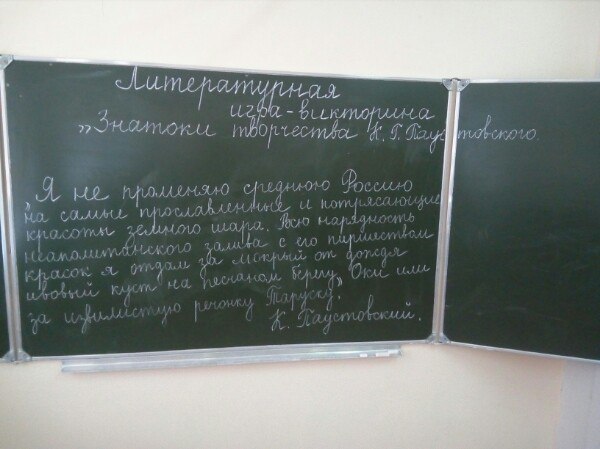 Литературная
игра-викторина
„Знатоки творчества К.Г. Паустовского.
„Я не променяю среднюю Россию
на самые прославленные и потрясающие
красоты земного шара. Всю нарядность
неаполитанского залива с его пиршеством
красок я отдам за мокрый от дождя
ивовый куст на песчаном берегу Оки или
за извилистую речонку Таруску."
К. Паустовский.